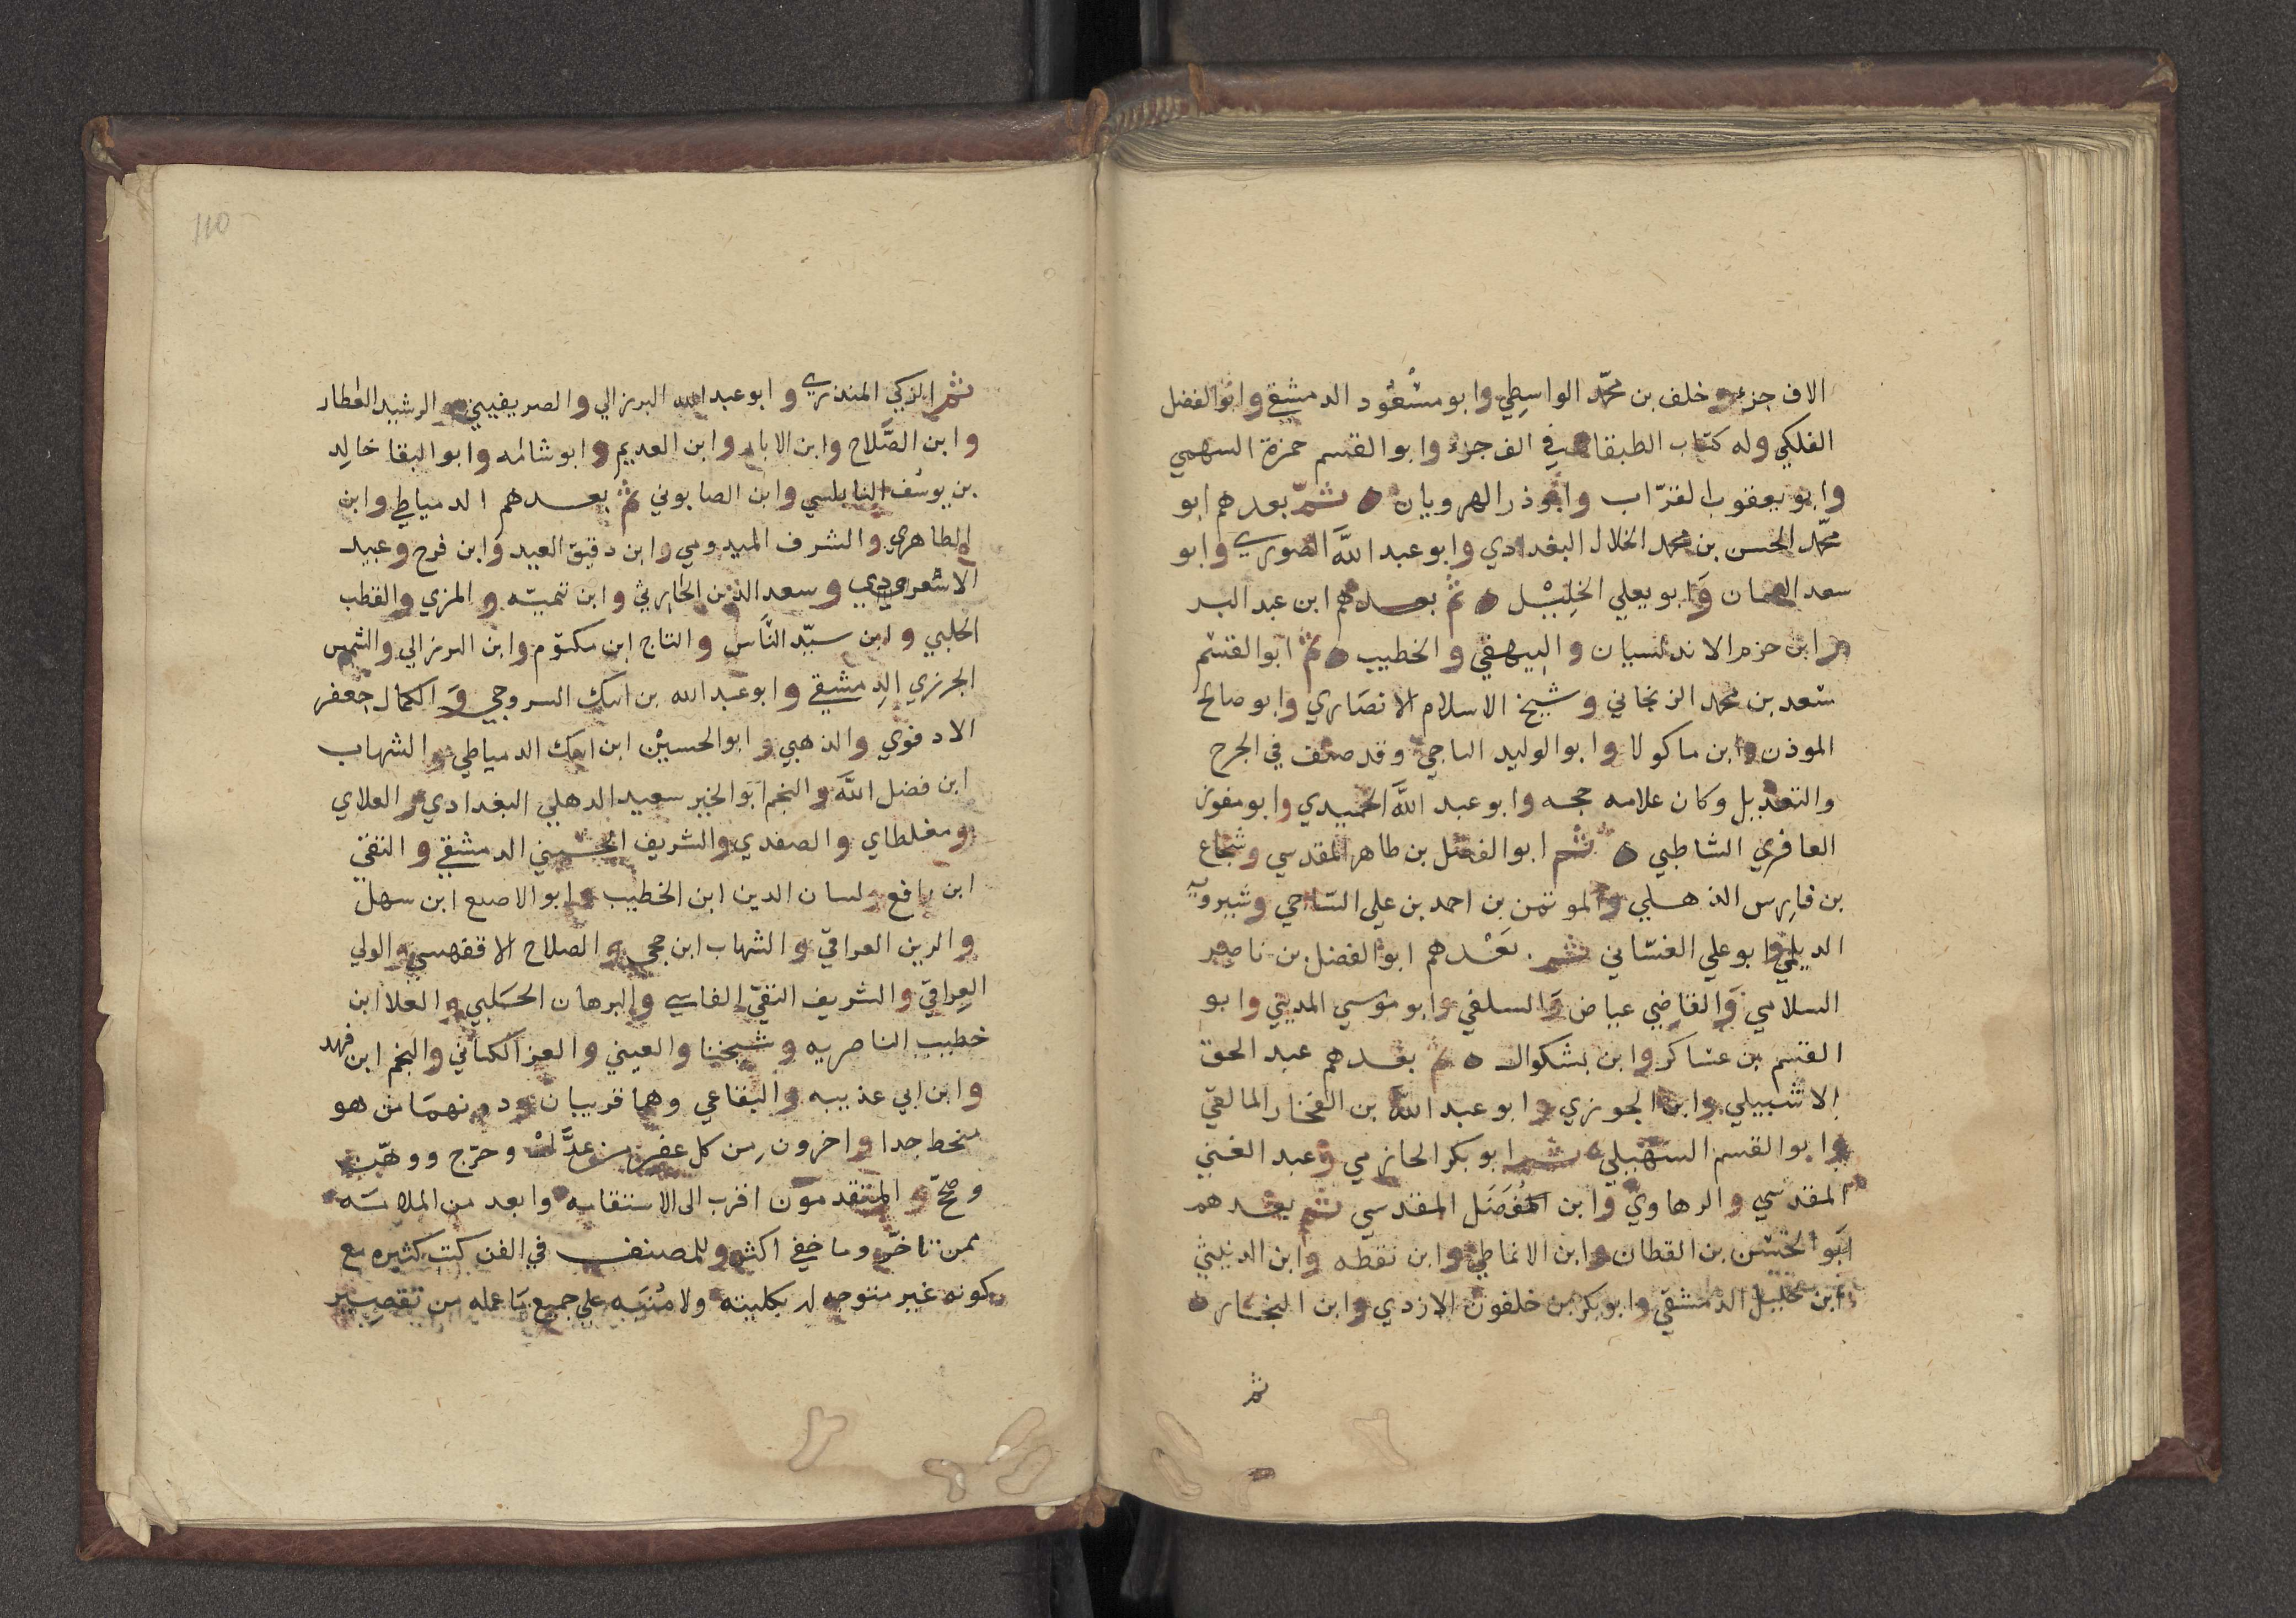 الاف جزء وخلف بن محمّد الواسِطي وابو مسْعُود الدمشقي وابو الفضل
الفلكي وله كتاب الطبقات في الف جزء وابو القسم حمزة السهمي
وابو يعقوب القرّاب وابو ذر الهرويان ثمّ بعدهم ابو
محمّد الحسن بن محمد الخلال البغدادي وابو عبد اللَّه الصوري وابو
سعد السمان وَابو يعلي الخلِيْل ثم بعدهم ابن عبد البر
وابن حزم الاندلسيان والبيهقي والخطيب ثم ابو القسم
سعد بن محمد الزنجاني وشيخ الاسلام الانصَاري وابو صالح
الموذن وابن ماكولا وابو الوليد الباجي وقد صنف في الجرح
والتعديل وكان علامه حجه وابو عبد اللَّه الحميدي وابو مفوز
المعافري الشاطبي ثم ابو الفضل بن طاهر المقدسي وشجاع
بن فارِس الذهلي والموتمن بن احمد بن علي السّاجي وشيرويه
الديلمي وابو علي الغسّاني ثم بَعْدهم ابو الفضل بن ناصر
السلامي وَالقاضي عياض وَالسلفي وابو موسي المديني وابو
القسم بن عساكر وابن بشكوال ثم بعدهم عبد الحق
الاشبيلي وابن الجوزي وابو عبد اللَّه بن الفخار المالقي
وابو القسم السهَيلي ثم ابو بكر الحازمي وعبد الغني
المقدسي والرهاوي وابن المُفضَل المقدسي ثم بعدهم
ابَو الحسَن بن القطان وابن الانماطي وابن نقطه وابن الدبيثي
وابن خليل الدمشقي وابو بكر بن خلفون الازدي وابن النجار
ثم
110
ثم الزكي المنذري وابو عبد الله البرزالي والصريفيني والرشيد العطار
وابن الصَّلاح وابن الابار وابن العديم وابو شامه وابو البقا خالِد
بن يوسُف النابلسي وابن الصابوني ثم بعدهم الدمياطي وابن
الظاهري والشرف الميدومي وابن دقيق العيد وابن فرح وعبيد
الاسعردي وسعد الدين الحارِثي وابن تيميّه والمزي والقطب
الحلبي وابن سيّد النَّاس والتاج ابن مكتوم وابن البرزالي والشمس
الجزري الدمشقي وابو عبد الله بن ايبك السروجي وَالكمال جعفر
الادفوي والذهبي وابو الحسيْن ابن ايبك الدمياطي والشهاب
ابن فضل اللَّه والنجم ابَو الخير سعيد الدهلي البغدادي والعلاي
ومغلطاي والصفدي والشريف الحسيني الدمشقي والتقي
ابن رافع ولسان الدين ابن الخطيب وابو الاصبع ابن سهل
والزين العراقي والشهاب ابن حجي والصلاح الاقفهسي والولي
العِراقي والشريف التقي الفاسي والبرهان الحَلبي والعلا ابن
خطيب الناصريه وشيخنا والعيني والعز الكناني والنجم ابن فهد
وابن ابي عذيبه والبقاعي وهما قريبان ودونهمَا من هو
منحط جدا واخرون من كل عصر ممن عدَّل وجرّح ووهّن
وصحّح والمتقدمون اقرب الى الاستقامه وابعد من الملامَه
ممن تاخّر وما خفي اكثر وللمصنف في الفن كتب كثيره مع
كونه غير متوجه له بكليته ولا مُنبَه علي جميع مَا عمله من تقصِير